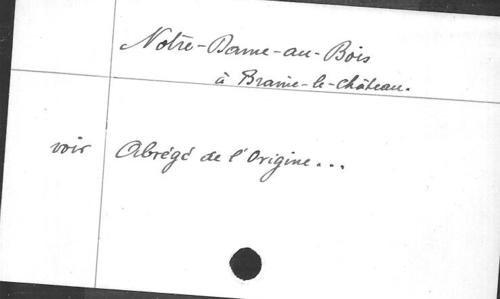 Notre-Dame-au-Bois
à Braine-le-Château.
voir Abrégé de l'Origine...